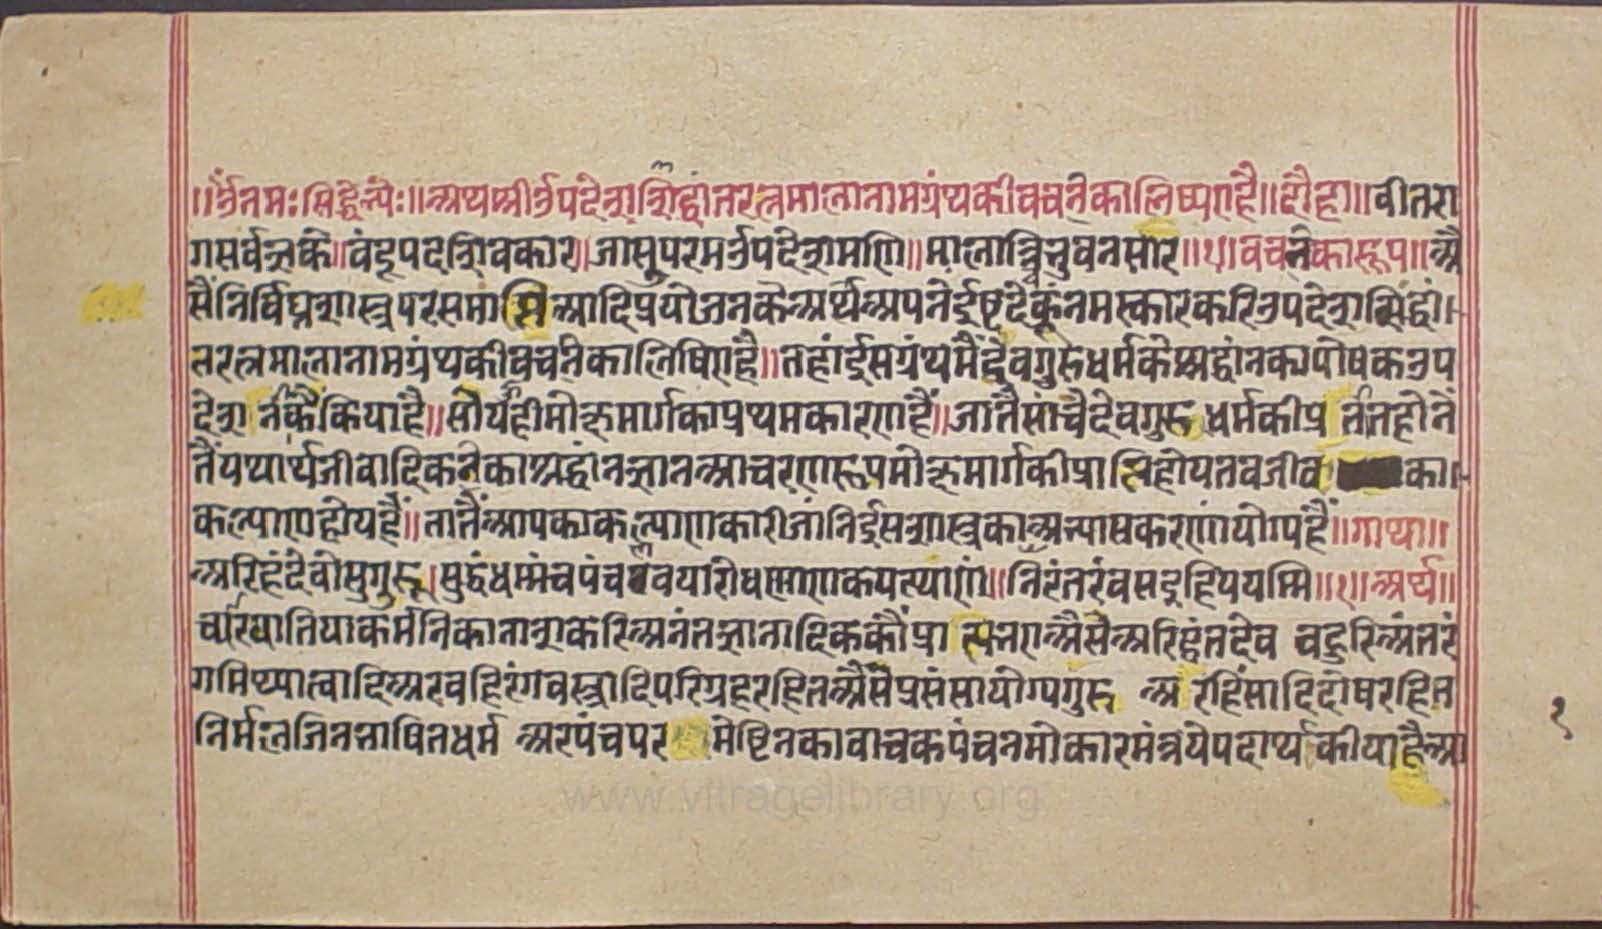 ॥ॐनमःसिद्धेभ्यः॥अथश्रीउपदेशसिद्धांतरत्नमालानामग्रंथकीवचनकालिष्यएहै॥दौहा॥वीतरा
गसर्वज्ञके॥वंदूपदशिवकार॥जासुपरमउपदेशमणि॥मालात्रिभुवनसार॥१॥वचनकारूप॥अै
सैंनिर्विघ्नशास्त्रपरसमाप्तिआदिप्रयोजनकेअर्थअपनेईष्टदेकूंनमस्कारकरिउपदेशसिद्धां
तरत्नमालानामग्रंथकीवचनकालिषिएहै॥तहांईसग्रंथमैंदेवगुरुधर्मकेश्रद्धांनकापोषकउप
देशनीकैंकियाहै॥सौयहीमोक्षमार्गकाप्रथमकारणहैं॥जातैसांचैदेवगुरुधर्मकीप्रतीतहोने
तैंयथार्थजीवादिकनिकाश्रद्धांनज्ञानआचरणरूपमोक्षमार्गकीप्राप्तिहोयतवजीवका
कल्याणहोयहैं॥तातैंआपकाकल्याणकारीजांनिईसशास्त्रकाअभ्यासकरणांयोग्यहैं॥गाथा॥
अरिहंदेवोसुगुरू।सुद्धंधम्मंचपंचणवयारोधण्णाणकयत्थाणं॥निरंतरंवसइहिययम्मि॥१॥अर्थ॥
च्यारिघातियाकर्मनिकानाशकरिअनंतज्ञानादिककौंप्राप्तभएअैसेअरिहंतदेव वहुरिअंतरं
गमिथ्यात्वादिअरवहिरंगवस्त्रादिपरिग्रहरहितअैसैप्रसंसायोग्यगुरु अरहिंसादिदोषरहित
निर्मलजिनभाषितधर्म अरपंचपरमेष्टिनकावाचकपंचनमोकारमंत्रयेपदार्थकीयाहैआ
१
www.vitragelibrary.org